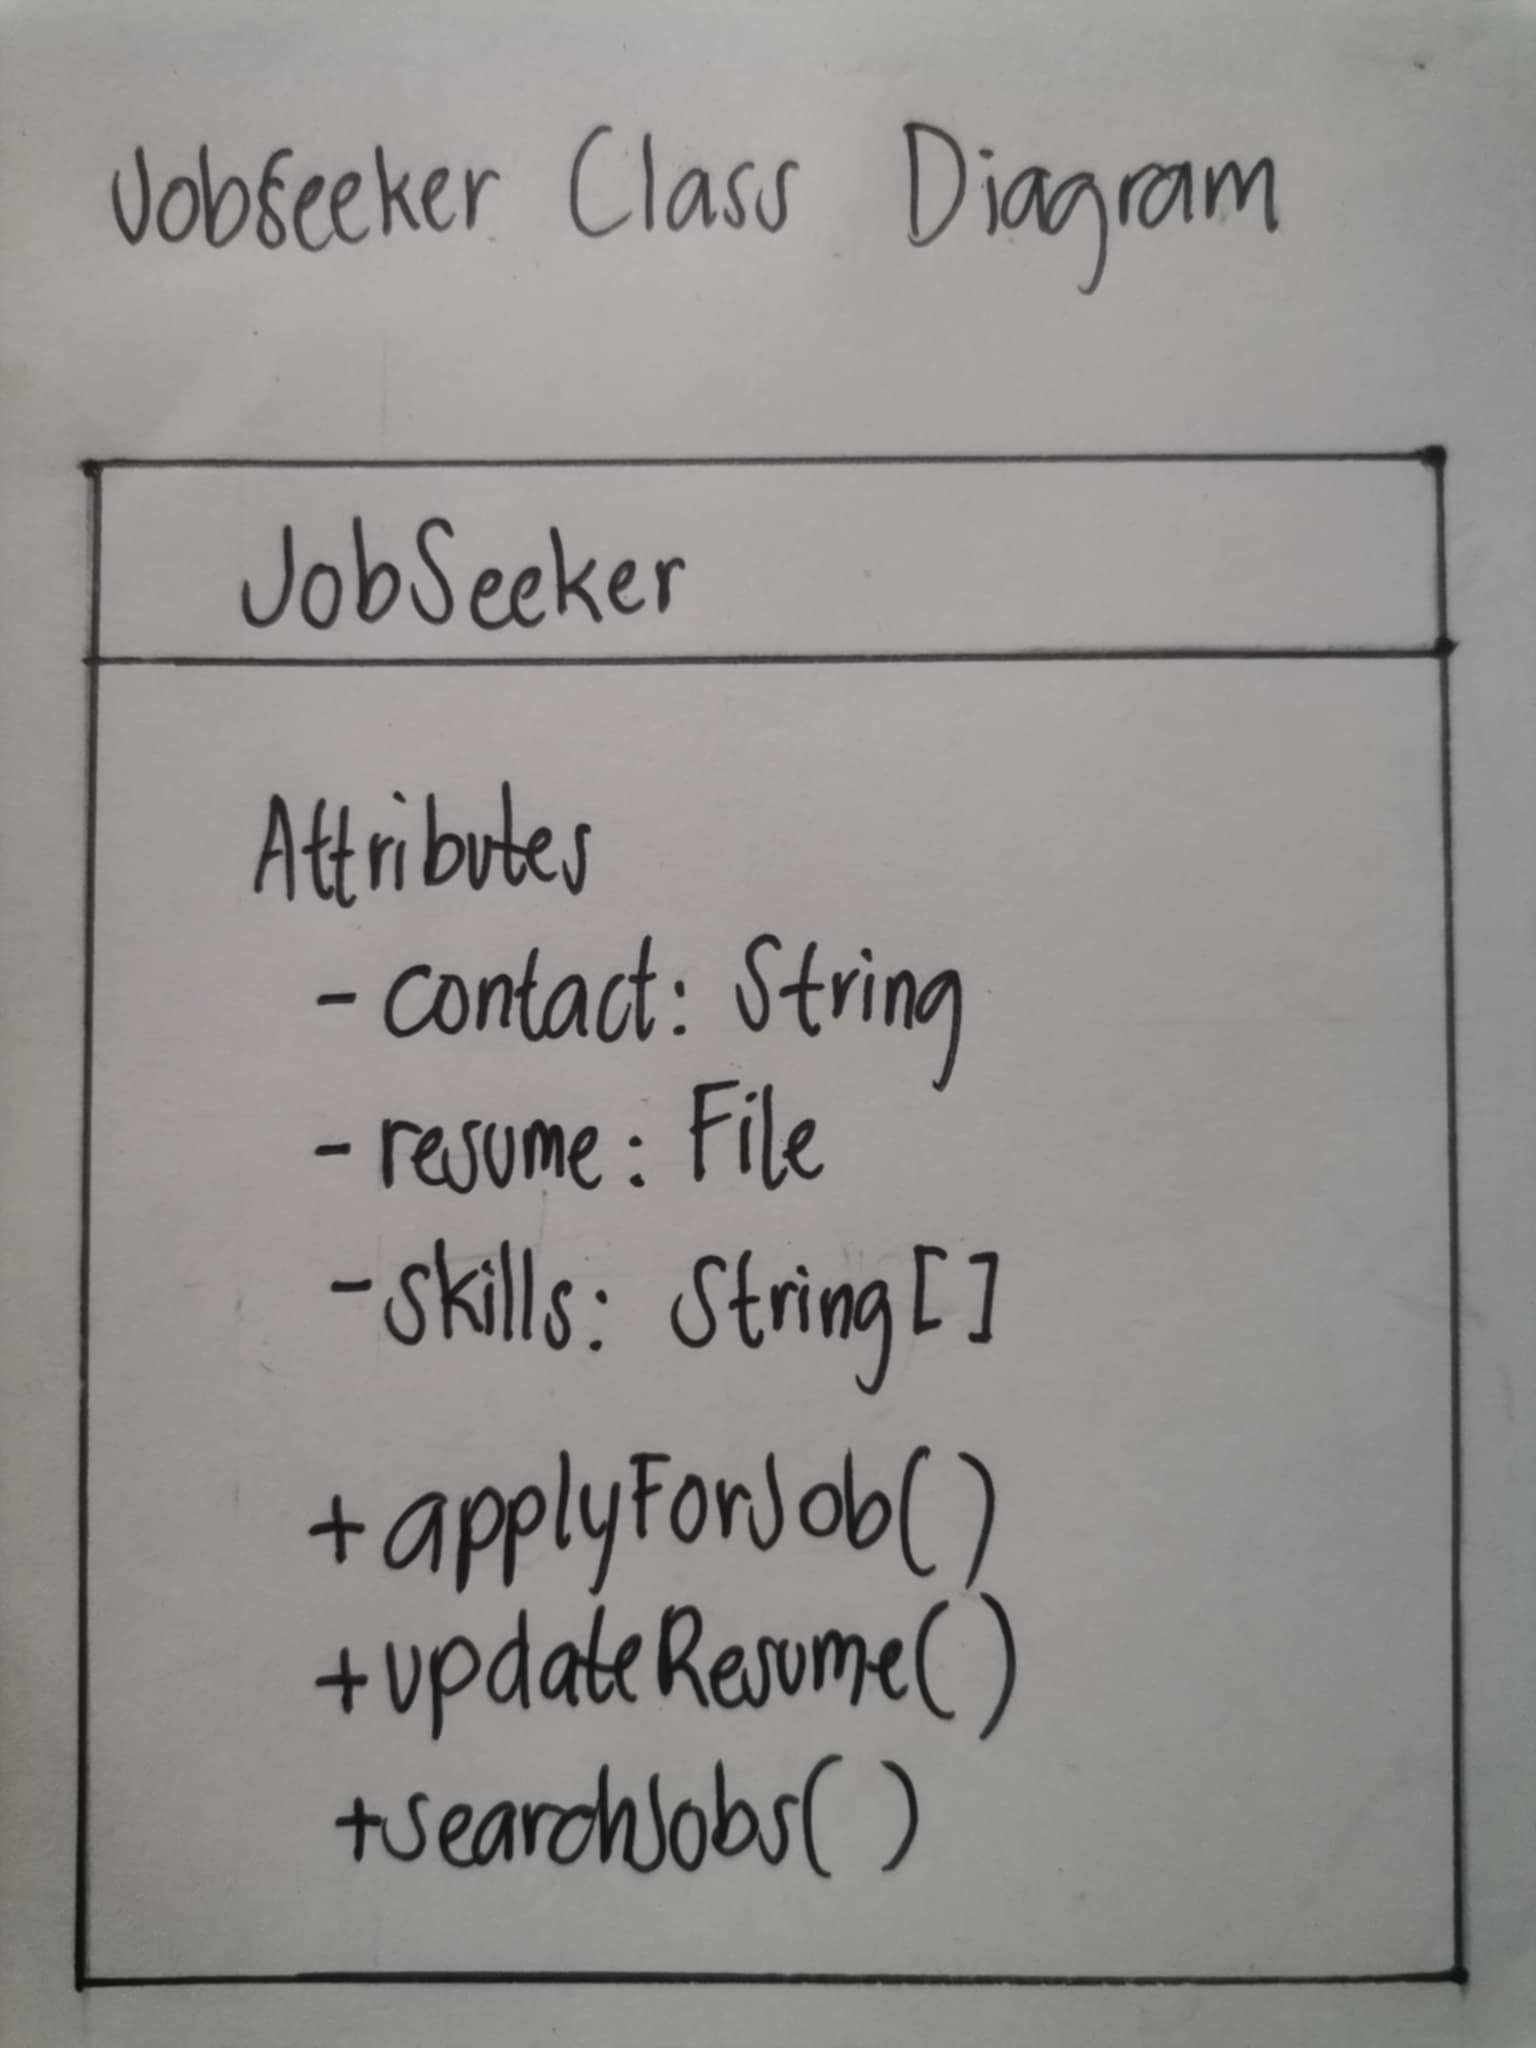 Jobseeker Class Diagram
JobSeeker
Attributes
- contact: String
- resume: File
- skills: String[]
+ applyForJob()
+ updateResume()
+ searchJobs()